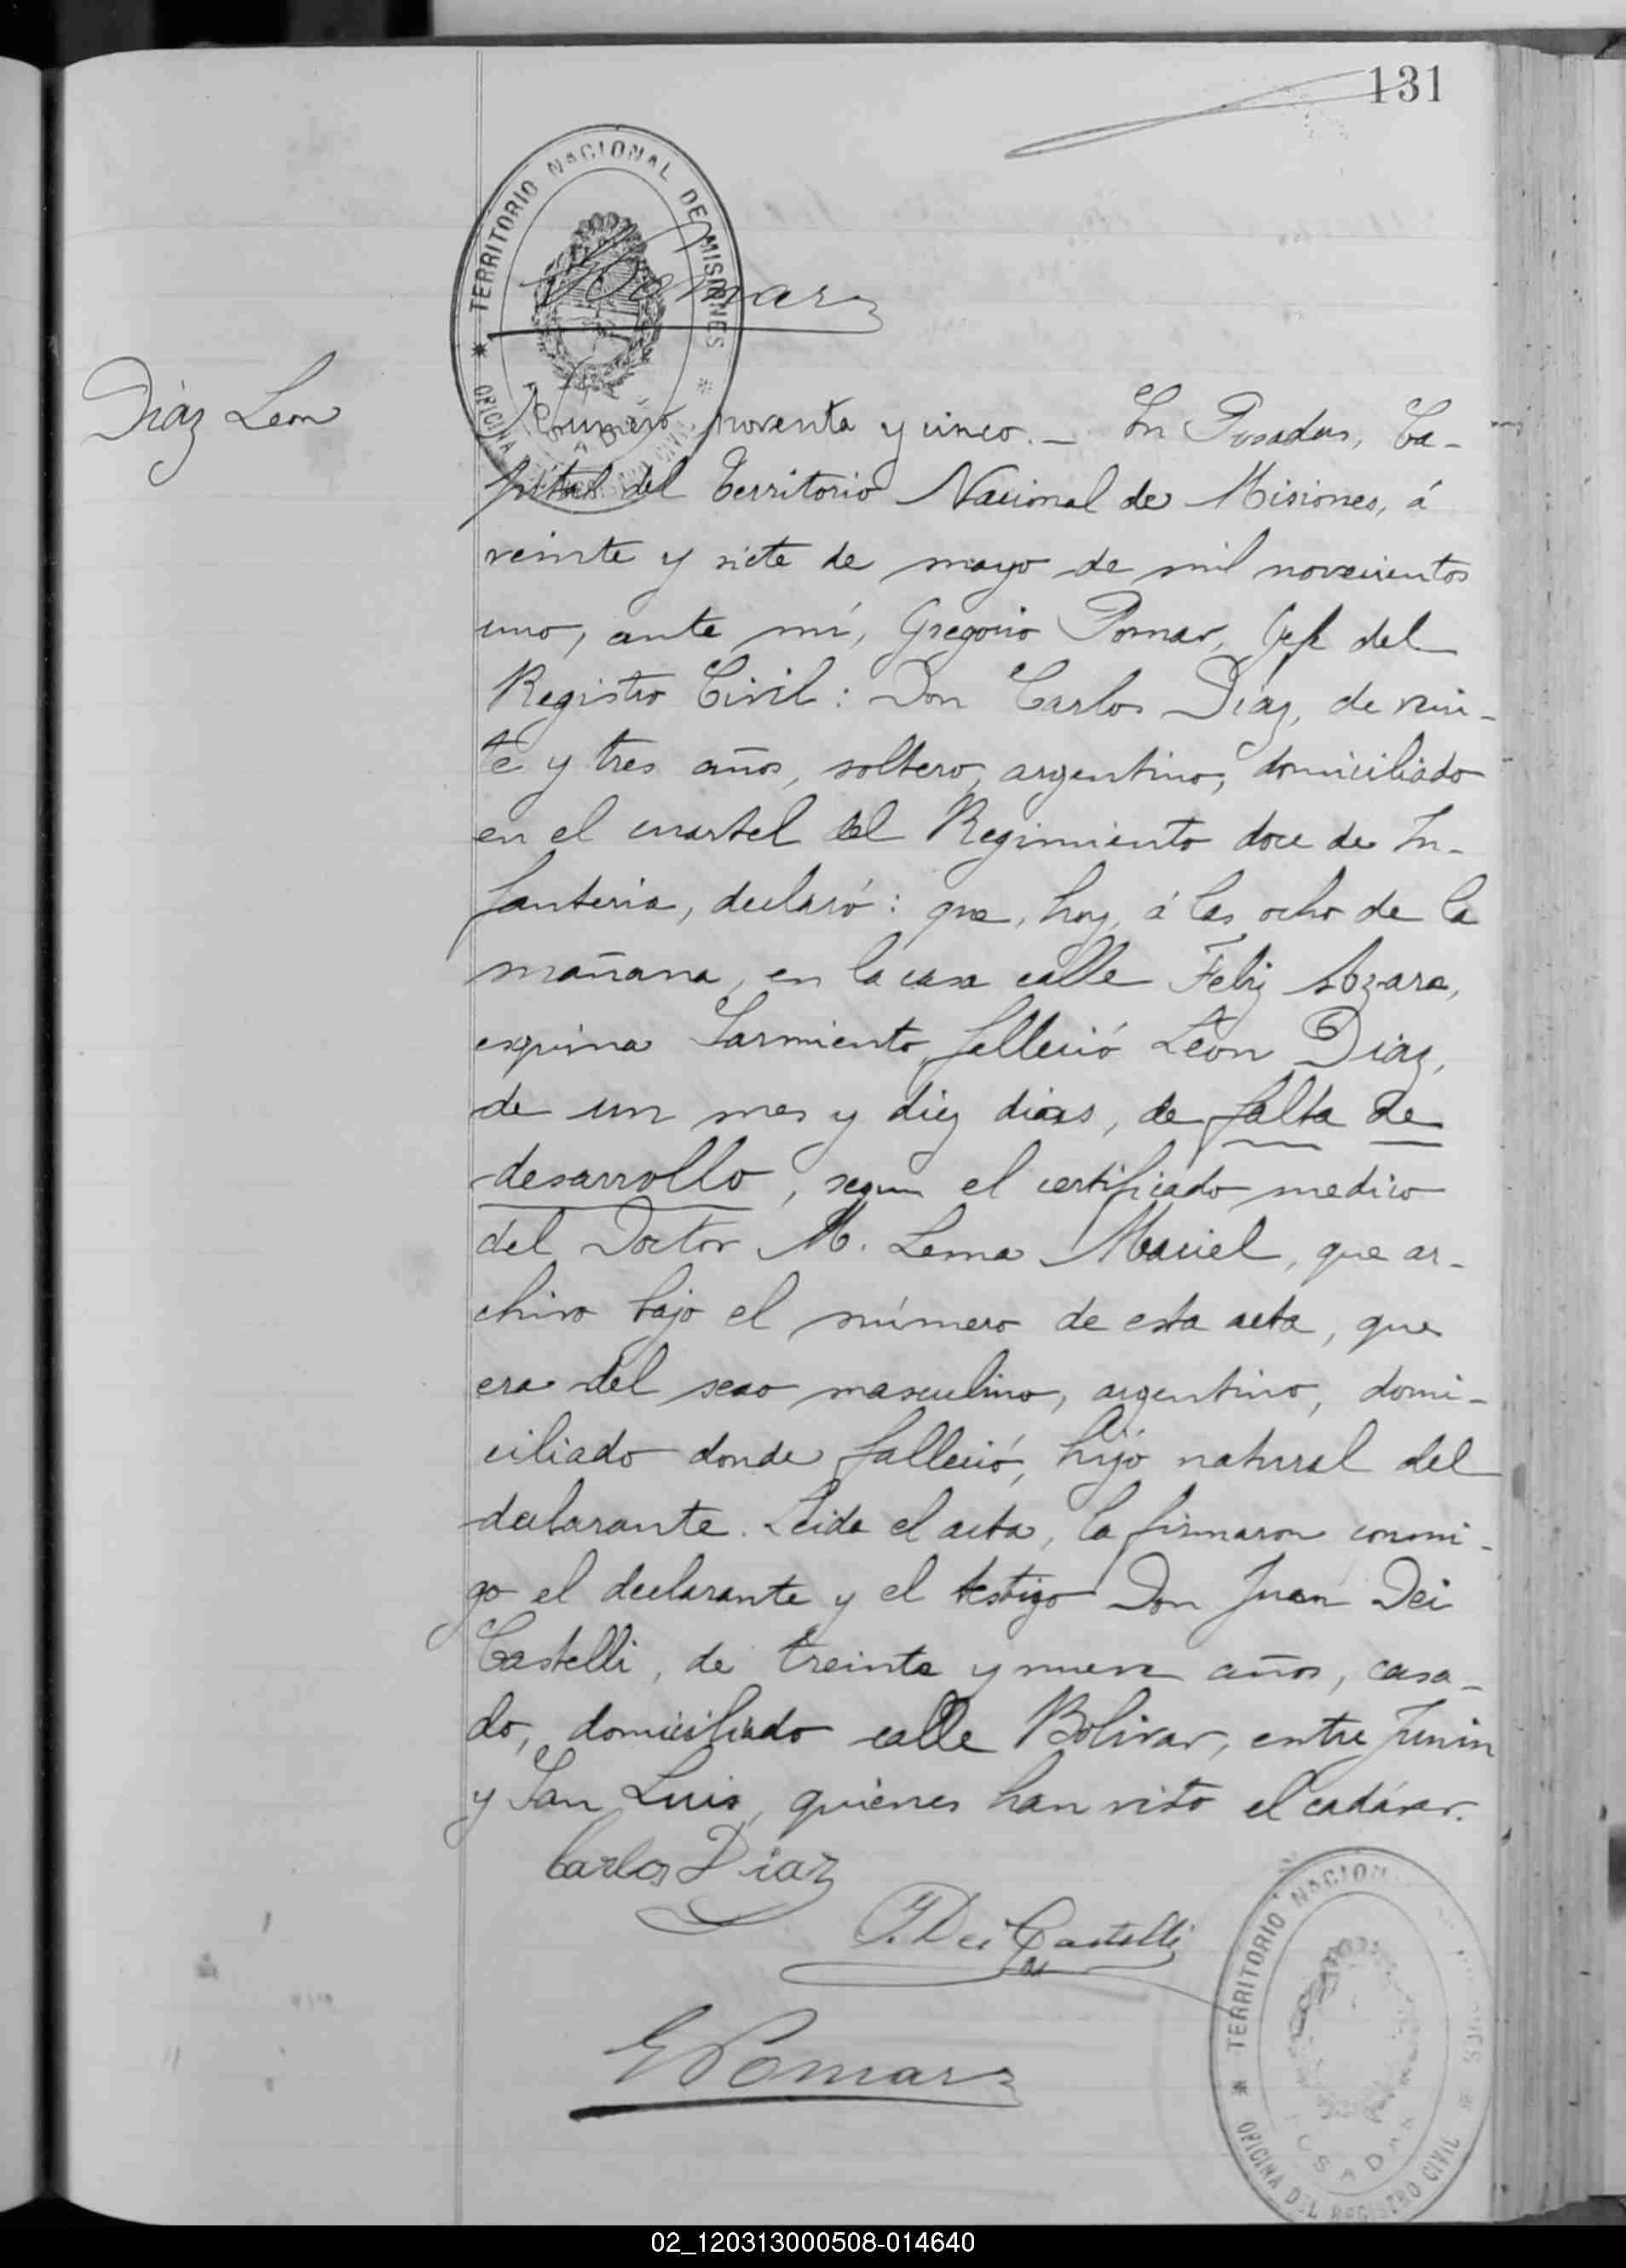 131
TERRITORIO NACIONAL DE MISIONES
OFICINA
Pomar
Díaz Leon
Número noventa y cinco. — En Posadas, Ca-
pital del Territorio Nacional de Misiones, á
veinte y siete de mayo de mil novecientos
uno, ante mí, Gregorio Pomar, Jefe del
Registro Civil: Don Carlos Díaz, de vein-
te y tres años, soltero, argentino, domiciliado
en el cuartel del Regimiento doce de In-
fanteria, declaró: que, hoy, á las ocho de la
mañana, en la casa calle Feliz Azara,
esquina Sarmiento, falleció León Diaz,
de un mes y diez dias, de falta de
desarrollo, segun el certificado medico
del Doctor M. Lema Maciel, que ar-
chivo bajo el número de esta acta, que
era del sexo masculino, argentino, domi-
ciliado donde falleció, hijo natural del
declarante. Leida el acta, la firmaron conmi-
go el declarante y el testigo Don Juan Dei
Castelli, de treinta y nueve años, casa-
do, domiciliado calle Bolivar, entre Junin
y San Luis, quienes han visto el cadáver.
Carlos Diaz
J. Dei Castelli
G Pomar
TERRITORIO NACION
OFICINA DEL REGISTRO CIVIL
02_120313000508-014640